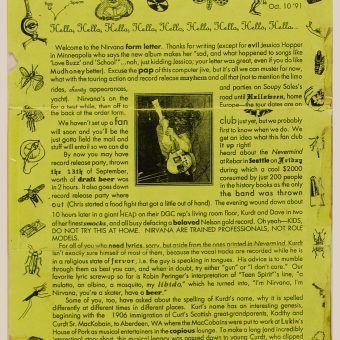 Oct. 10 '91
Hello, Hello, Hello, Hello, Hello, Hello, Hello, Hello, Hello...
Welcome to the Nirvana farm letter. Thanks for writing (except for evil Jessica Hopper
in Minneapolis who says the new album makes her "sad, and what happened to songs like
'Love Buzz' and 'School?'"...nah, just kidding Jessica; your letter was great, even if you do like
Mudhoney better). Excuse the pap of this computer jive, but it's all we can muster for now,
what with the touring action and record release mayhem and all that (not to mention the limo
rides, charity appearances,
and parties on Soupy Sales's
yacht). Nirvana's on the
road until Halloween, home
for a beat while, then off to
Europe—the tour dates are on
the back of the order form.
We haven't set up a fan
club just yet, but we probably
will soon and you'll be the
first to know when we do. We
just gotta field the mail and
get an idea what this fan club
stuff will entail so we can do
it up right!
By now you may have
heard about the Nevermind
record release party, thrown
at Rebar in Seattle on Friday
the 13th of September,
during which a cool $2000
worth of draft beer was
consumed by just 200 people
in 2 hours. It also goes down
in the history books as the only
record release party where
the band was thrown
out (Chris started a food fight that got a little out of hand). The evening wound down about
10 hours later in a giant HEAP on their DGC rep's living room floor, Kurdt and Dave in two
of her finest smocks, and all busy defacing a beloved Nelson gold record. Oh yeah—KIDS,
DO NOT TRY THIS AT HOME. NIRVANA ARE TRAINED PROFESSIONALS, NOT ROLE
MODELS.
For all of you who need lyrics, sorry, but aside from the ones printed in Nevermind, Kurdt
isn't exactly sure himself of most of them, because the vocal tracks are recorded while he is
in a religious state of fervor, i.e. the guy is speaking in tongues. His advice is to mumble
through them as best you can, and when in doubt, try either "gun" or "I don't care." Our
favorite lyric screwup so far is Robin Peringer's interpretation of "Teen Spirit"'s line, "a
mulatto, an albino, a mosquito, my libido," which he turned into, "I'm Nirvana, I'm
Nirvana, you're a skater, have a beer."
Some of you, too, have asked about the spelling of Kurdt's name, why it is spelled
differently at different times in different places. Kurt's name has an interesting genesis,
beginning with the 1906 immigration of Curt's Scottish great-grandparents, Kadthy and
Curdt Sr. MacKobain, to Aberdeen, WA where the MacCobains were put to work at Luiklw's
House of Pork as musical entertainers in the copious lounge. To make a long (and incredibly
interesting) story short, this musical legacy was passed down to young Curdt, who clipped